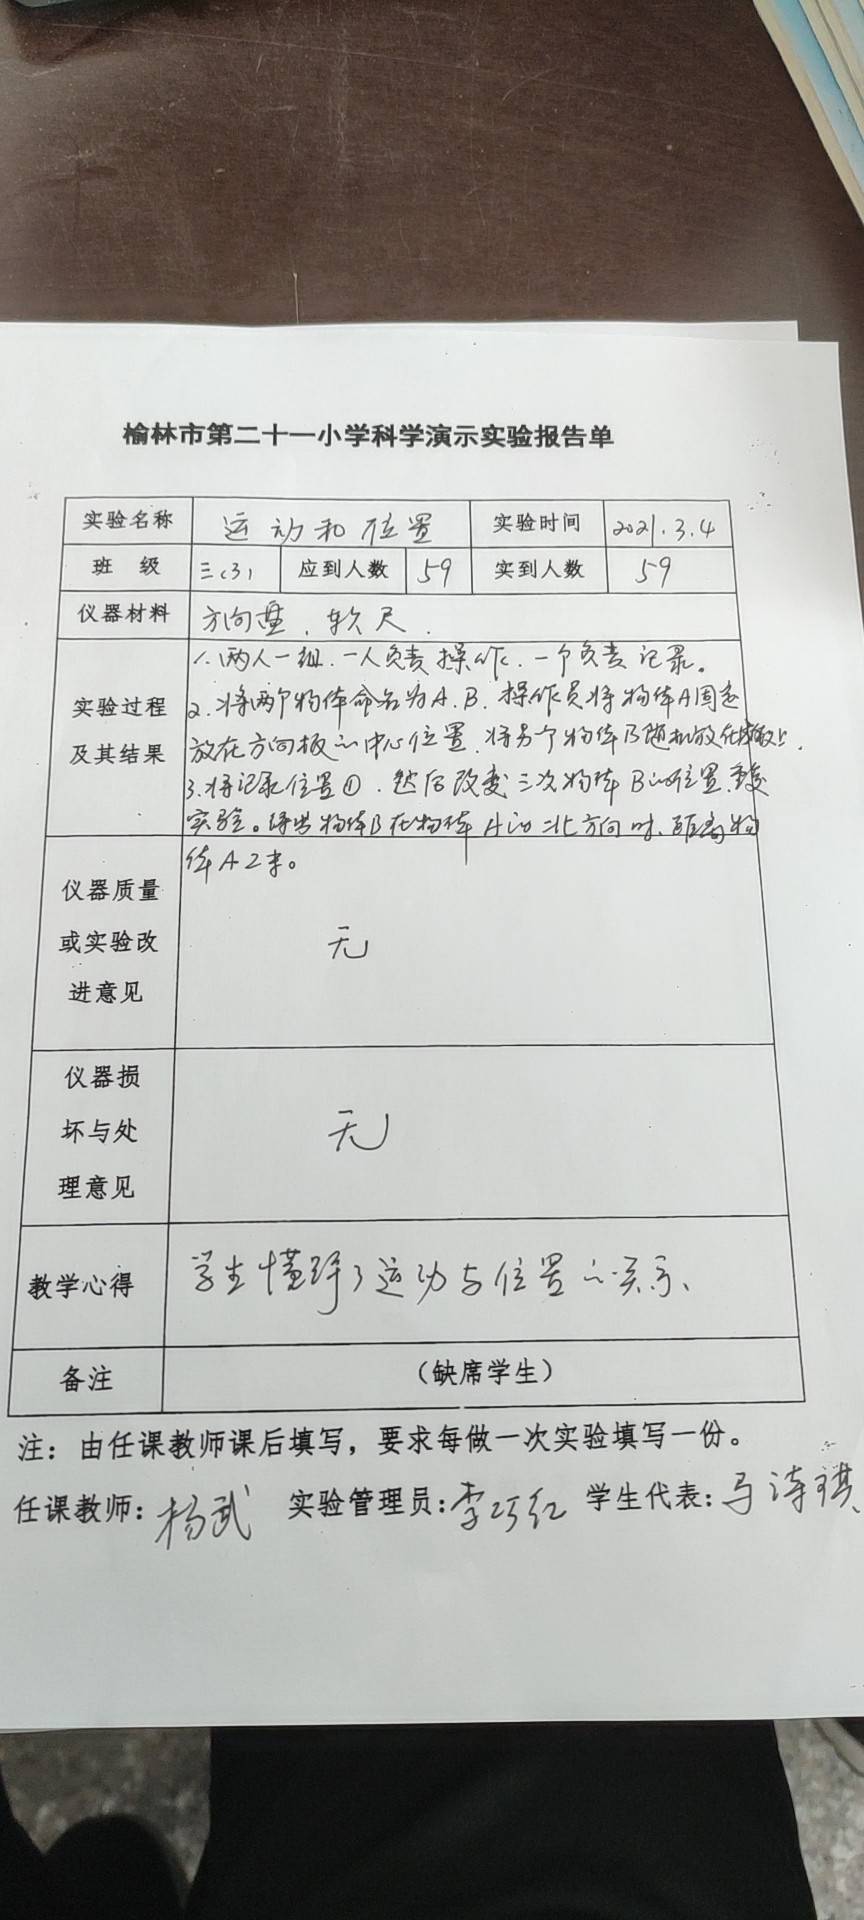 榆林市第二十一小学科学演示实验报告单
实验名称 运动和位置 实验时间 2021.3.4
班 级 三(3) 应到人数 59 实到人数 59
仪器材料 方向盘、软尺.
实验过程及其结果
1.两人一组.一人负责操作.一个负责记录。
2.将两个物体命名为A.B.操作员将物体A固定
放在方向板的中心位置.将另个物体B随机放在
3.将记录位置①.然后改变三次物体B的位置.重复
实验。得出物体B在物体A的北方向时.距离物
体A2米。
仪器质量
或实验改
进意见
无
仪器损
坏与处
理意见
无
教学心得 学生懂得了运动与位置的关系、
备注 （缺席学生）
注：由任课教师课后填写，要求每做一次实验填写一份。
任课教师：杨武 实验管理员：李巧红 学生代表：马诗琪